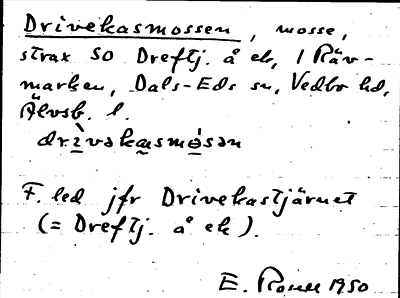 Drivekasmossen, mosse,
strax SO Dreftj. å ek, i Räv-
marken, Dals-Eds sn, Vedbo hd,
Älvsb. l.
drìvəkasmósən
F. led jfr Drivekastjärnet
(= Dreftj. å ek).
E. Rosell 1950